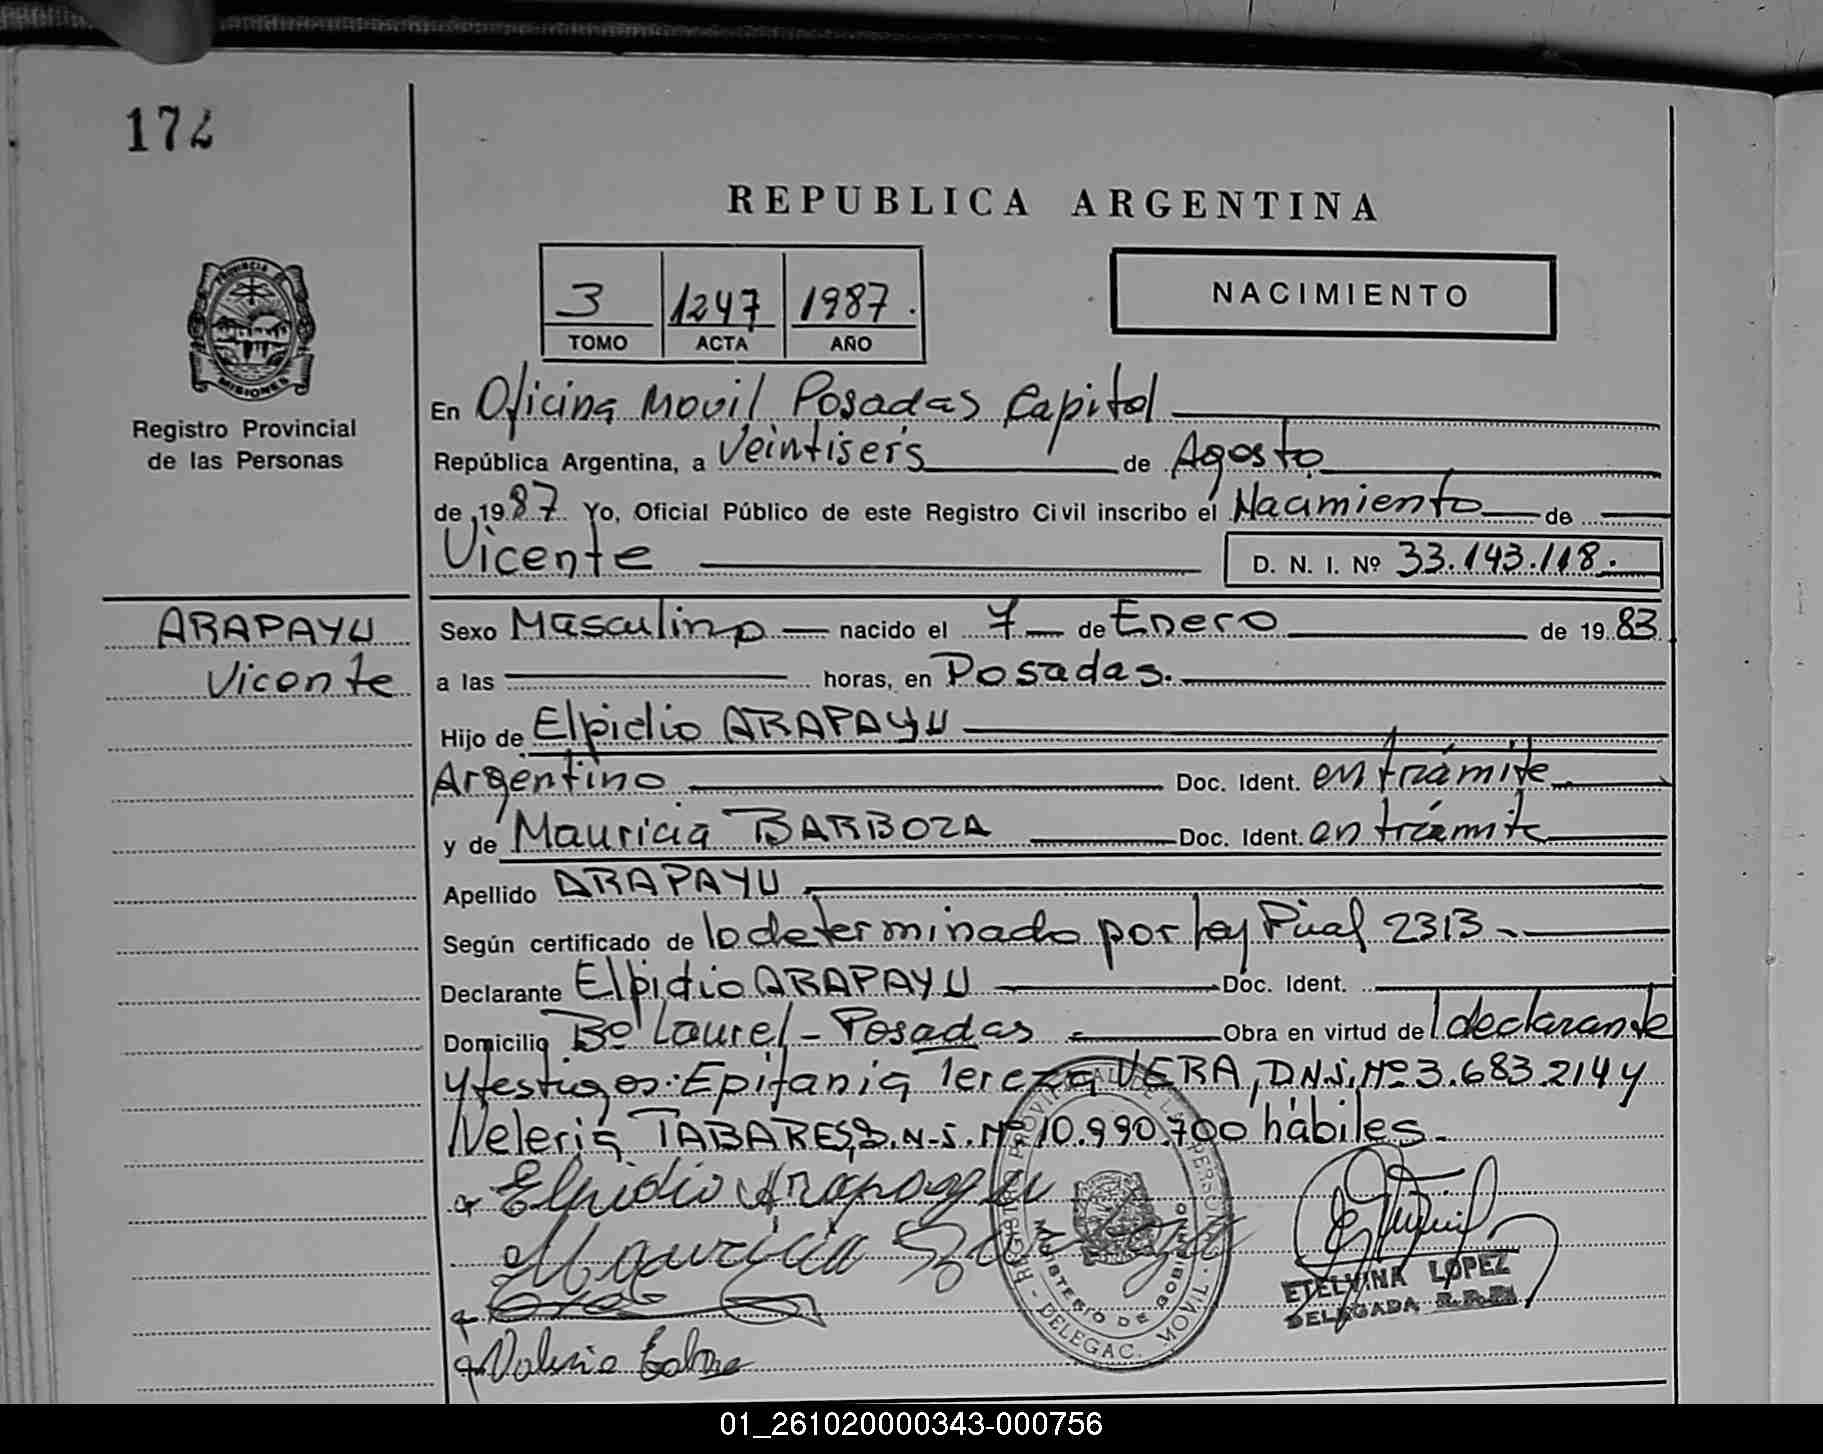 172
REPUBLICA ARGENTINA
3 1247 1987.
TOMO ACTA AÑO
NACIMIENTO
PROVINCIA DE
MISIONES
Registro Provincial
de las Personas
En Oficina Movil Posadas Capital
República Argentina, a Veintiseis de Agosto
de 1987 Yo, Oficial Público de este Registro Civil inscribo el Nacimiento de
Vicente D. N. I. Nº 33.143.118.
ARAPAYU
Vicente
Sexo Masculino nacido el 7 de Enero de 1983
a las horas, en Posadas.
Hijo de Elpidio ARAPAYU
Argentino Doc. Ident. en trámite
y de Mauricia BARBOZA Doc. Ident. en trámite
Apellido ARAPAYU
Según certificado de lo determinado por ley Pcial 2313
Declarante Elpidio ARAPAYU Doc. Ident.
Domicilio Bº Laurel - Posadas Obra en virtud de l declarante
y testigos: Epifania Tereza VERA, D.N.i. Nº 3.683.214 y
Neleria TABARES, D.N.i. Nº 10.990.700 hábiles.
Elpidio Arapayu
Mauricia
Valeria
REGISTRO PROVINCIAL DE LAS PERSONAS
MINISTERIO DE GOBIERNO
DELEGAC. MOVIL
ETELVINA LOPEZ
DELEGADA R.P.P.
01_261020000343-000756